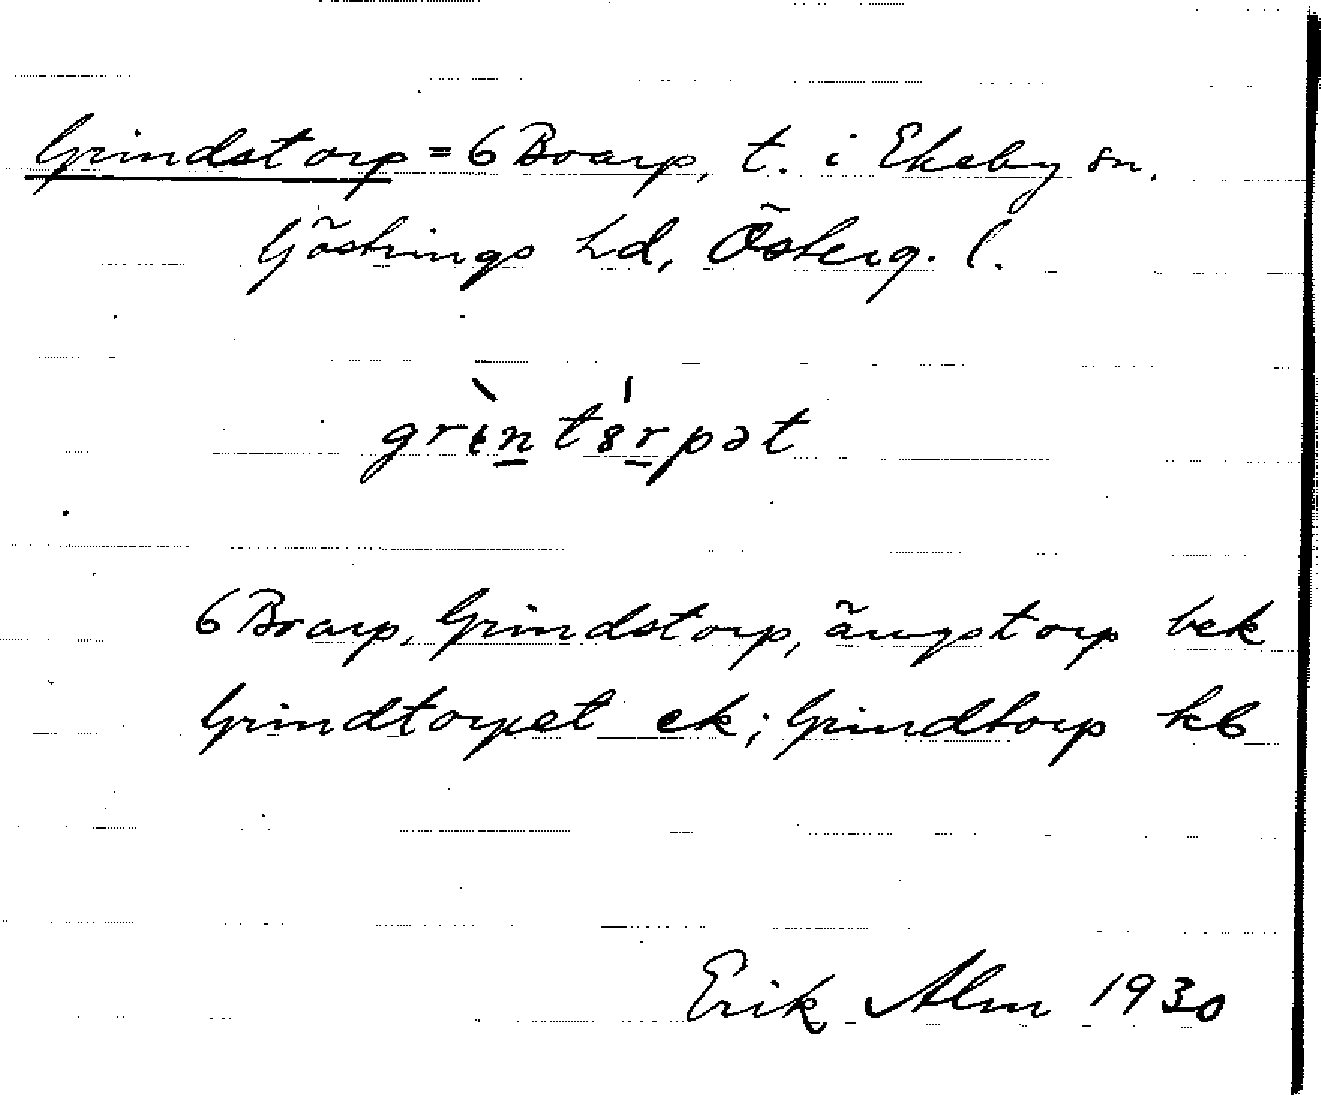 Grindstorp = 6 Boarp, t. i Ekeby sn.
Göstrings hd, Österg. l.
grìntórpət
6 Boarp, Grindstorp, ängstorp bek
Grindtorpet ek; Grindtorp kb
Erik Alm 1930